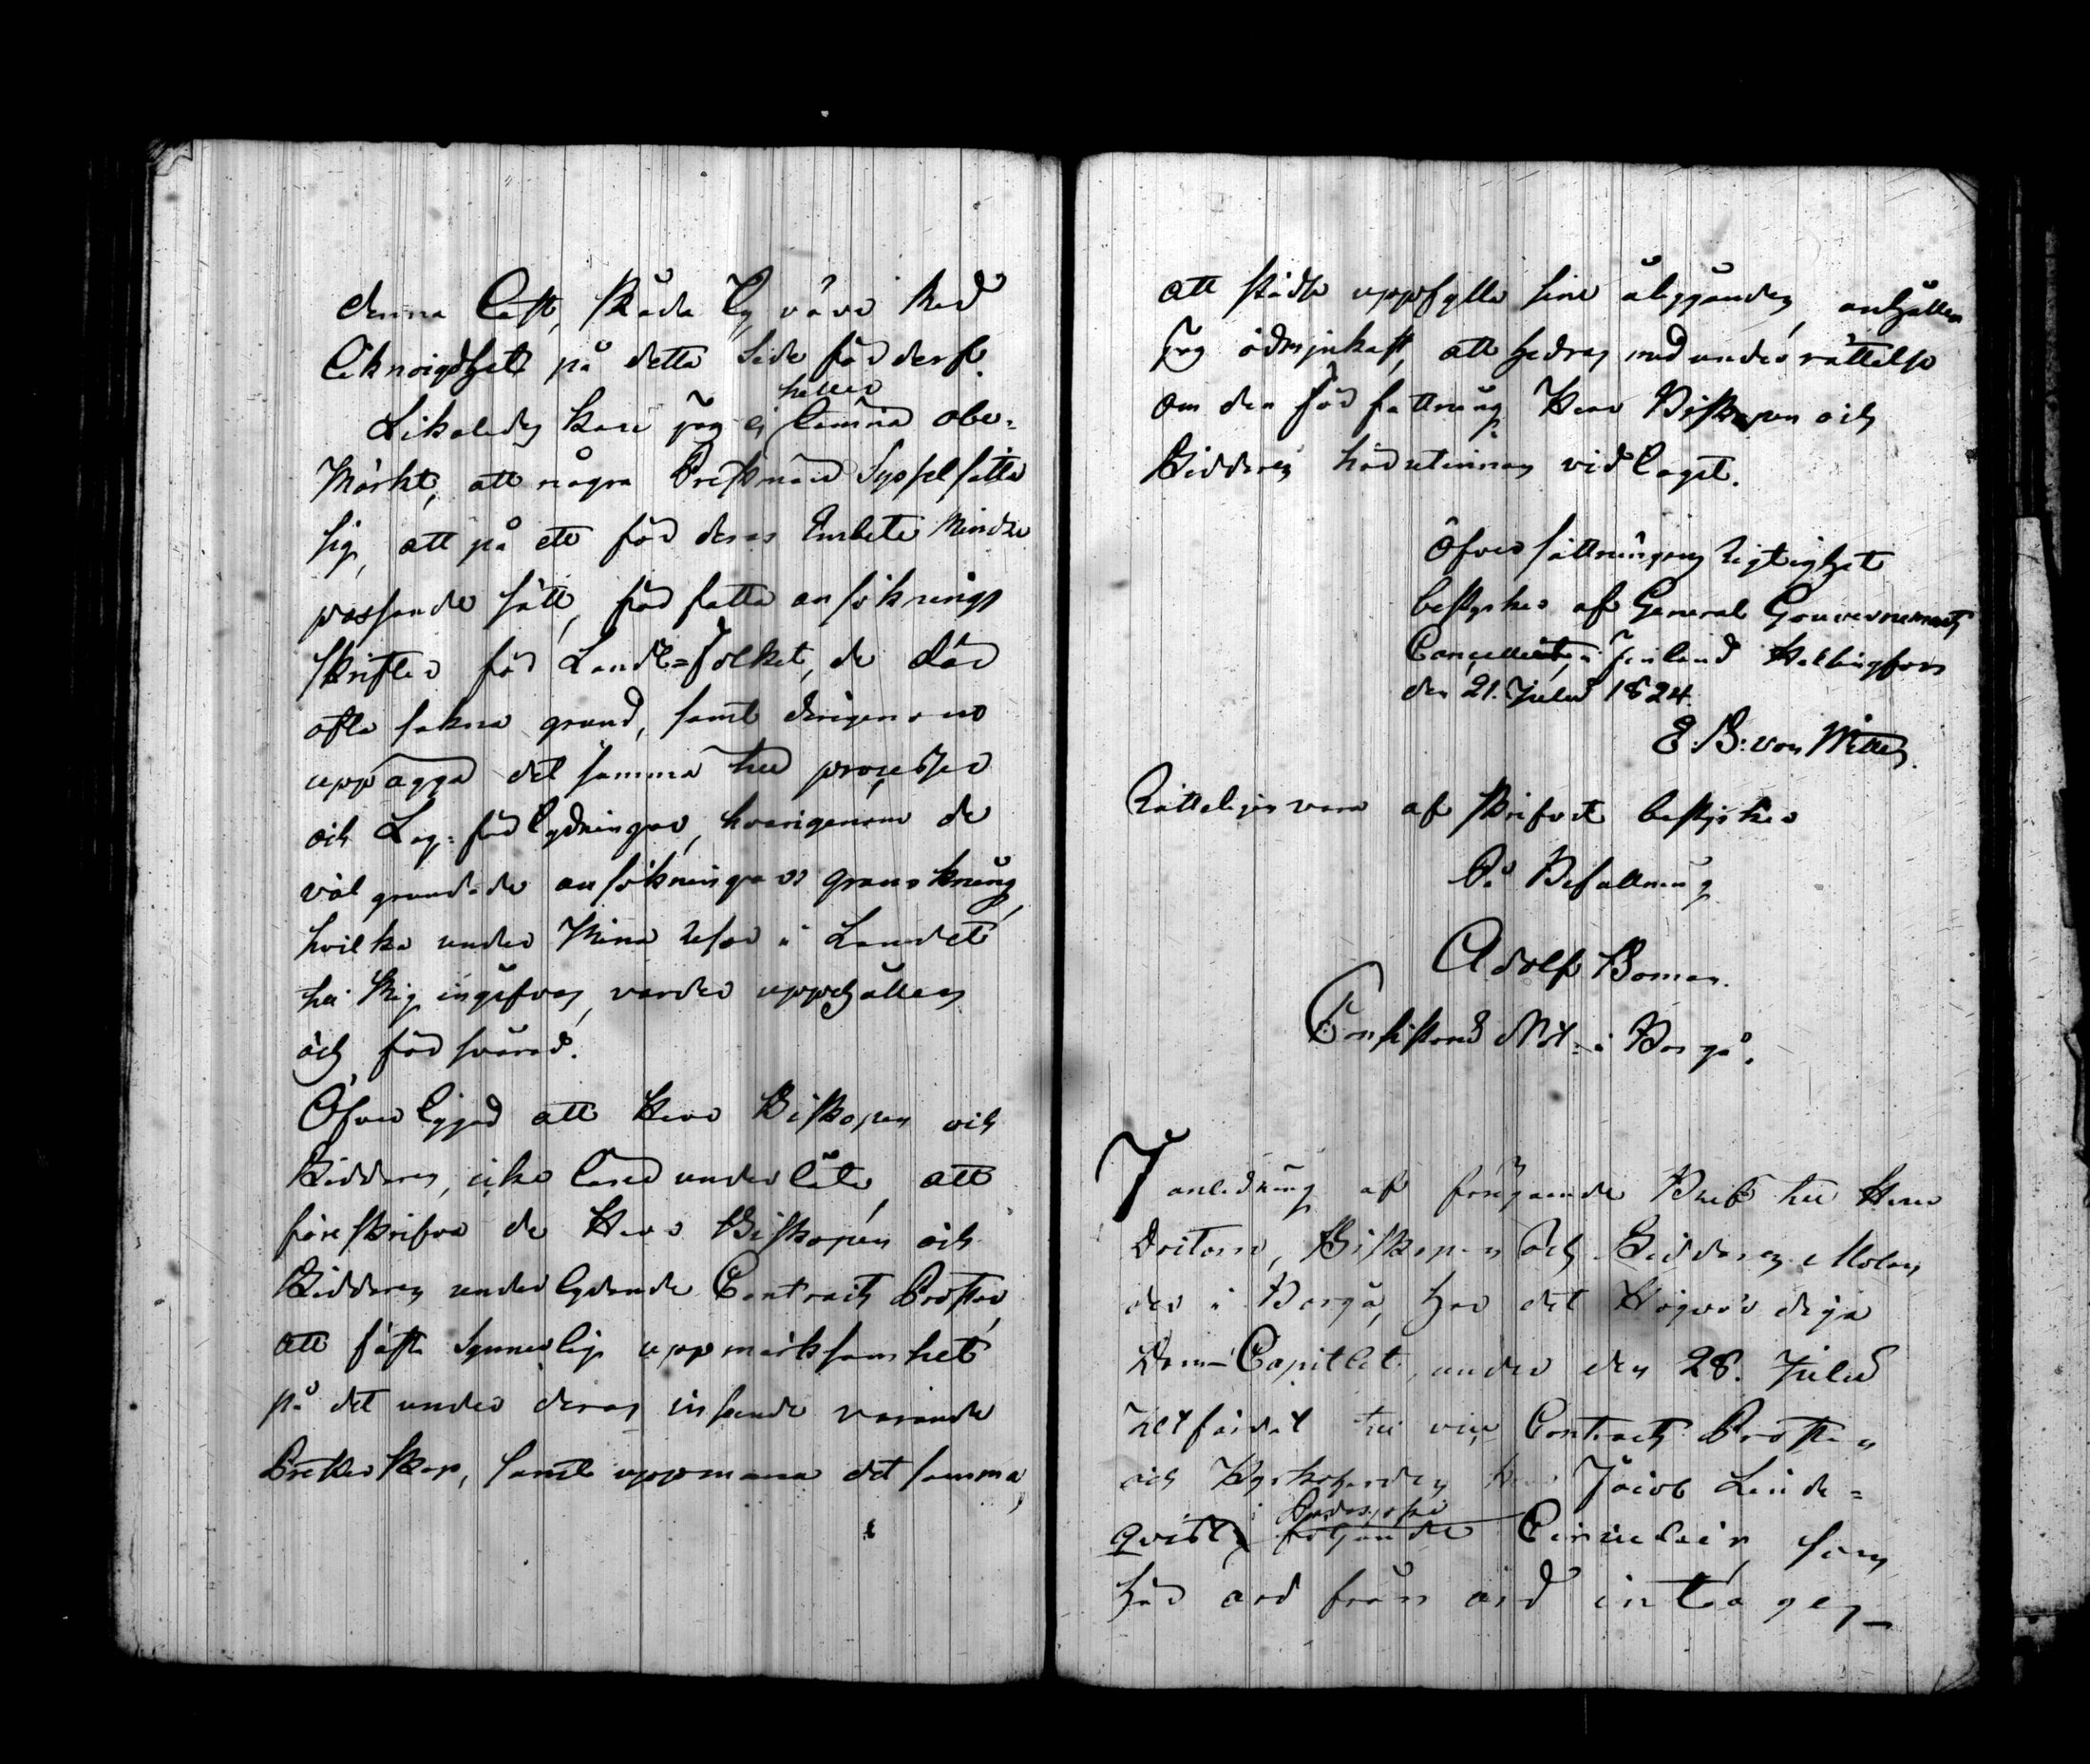 denna Last, skada Ty vårr stad
Liknöigdhet på detta Sede förderf.
heller
Likaledes kan jag ej lämna obe-
märkt, att några Prestmän Sysselsätta
sig, att på ett för deras Embete mindre
passande sätt, författa ansöknings
skrifter för Lands-Folket, de där
ofta sakna grund, samt därigenom
uppägga det samma till processer
och Lag-förlydningar, hvarigenom de
väl grundade ansökningars granskning,
hvilka under Mina resor i Landet
till Mig ingifvas, varder uppehållen
och försvårad.
Öfvertygad att Herr Biskopen och
Riddaren, icke lärer underlåta, att
föreskrifva de Herr Biskopen och
Riddaren underlydande Contracts Prostar,
att fästa synnerlig uppmärksamhet
på det under deras inseende varande
Presterskap, samt uppmana det samma,
att städse uppfylla sine åligganden, anhåller
Jag ödmjukast, att hedras med underrättelse
om den författning Herr Biskopen och
Riddaren härutinnan vidtagit.
Öfversättningens Rigtighet
bestyrkes af General Gouvernements
Cancelliet i Finland Helsingfors
den 21. Julii 1824.
E. B: von Willen.
Rätteligen vara afskrifvit bestyrker
På Befallning
Adolf Boman.
Consistorii Not: i Borgå.
I anledning af föregående Bref till Herr
Doctorn, Biskopen och Riddaren Molan
der i Borgå, har det Högvördiga
Dom-Capitlet, under den 28. Julii
utfärdat till vice Contracts Prosten
och Kyrkoherden Herr Jacob Linde-
i Padasjoki
qvist, följande Circulair, som
här ord från ord intages_